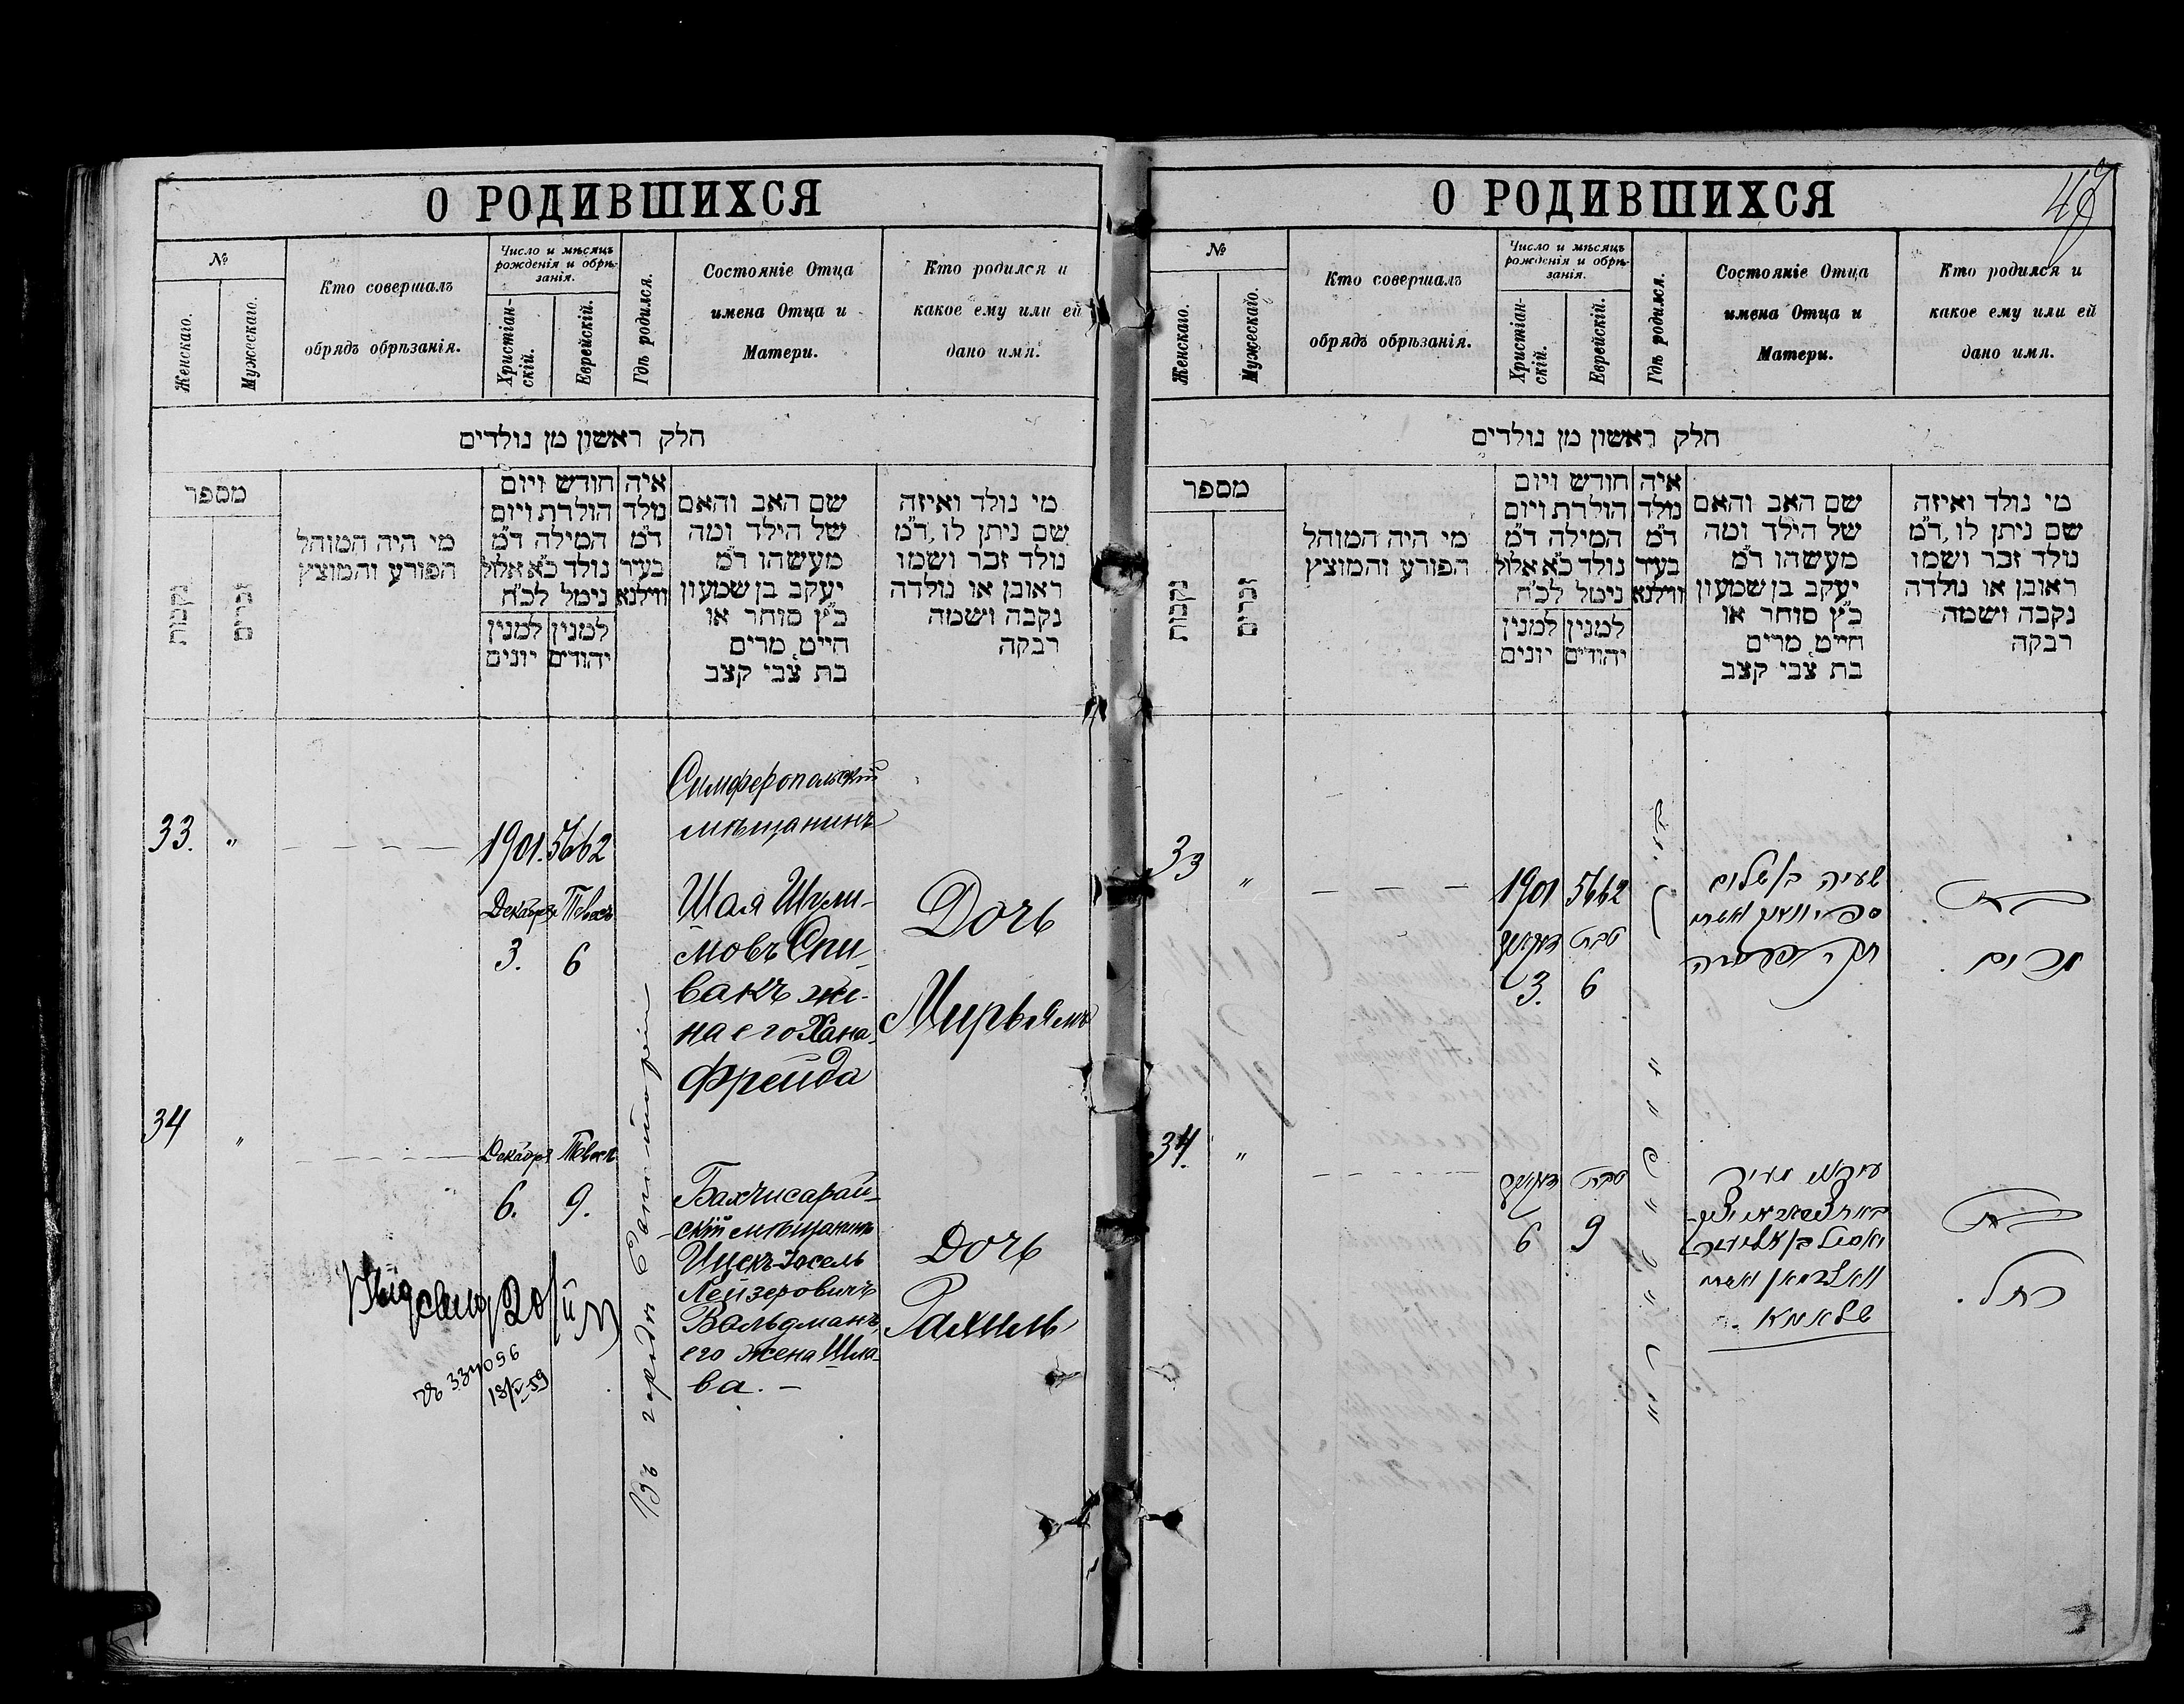 О РОДИВШИХСЯ
№
Женскаго.
Мужескаго.
Кто совершалъ
обрядъ обрѣзанія.
Число и мѣсяцъ
рожденія и обрѣ-
занія.
Христіан-
скій.
Еврейскій.
Гдѣ родился.
Состояніе Отца
имена Отца и
Матери.
Кто родился и
какое ему или ей
дано имя.
חלק ראשון מן נולדים
מספר
נקבות
זכרים
מי היה המוהל
הפורע והמוצץ
חודש ויום
הולדת ויום
המילה ד״מ
נולד כ״א אלול
נימל לכ״ח
למנין למנין
יהודים יונים
איה
נולד
ד״מ
בעיר
ווילנא
שם האב והאם
של הילד ומה
מעשהו ד״מ
יעקב בן שמעון
כ״ץ סוחר או
חייט, מרים
בת צבי קצב
מי נולד ואיזה
שם ניתן לו, ד״מ
נולד זכר ושמו
ראובן או נולדה
נקבה ושמה
רבקה
33. „
1901. 5662
Декабря Тевесъ
3. 6
Симферопольскій
мѣщанинъ
Шая Шули-
мовъ Спи-
вакъ же-
на его Хана-
Фрейда
Дочь
Мирьямъ
34 „
Декабря Тевесъ
6. 9.
Бахчисарай-
скій мѣщанинъ
Ицекъ-Іосель
Лейзеровичъ
Вальдманъ,
его жена Шла-
ва. –
Дочь
Рахиль
Въ городѣ Евпаторіи
334056
О РОДИВШИХСЯ
№
Женскаго.
Мужескаго.
Кто совершалъ
обрядъ обрѣзанія.
Число и мѣсяцъ
рожденія и обрѣ-
занія.
Христіан-
скій.
Еврейскій.
Гдѣ родился.
Состояніе Отца
имена Отца и
Матери.
Кто родился и
какое ему или ей
дано имя.
חלק ראשון מן נולדים
מספר
נקבות
זכרים
מי היה המוהל
הפורע והמוצץ
חודש ויום
הולדת ויום
המילה ד״מ
נולד כ״א אלול
נימל לכ״ח
למנין למנין
יהודים יונים
איה
נולד
ד״מ
בעיר
ווילנא
שם האב והאם
של הילד ומה
מעשהו ד״מ
יעקב בן שמעון
כ״ץ סוחר או
חייט, מרים
בת צבי קצב
מי נולד ואיזה
שם ניתן לו, ד״מ
נולד זכר ושמו
ראובן או נולדה
נקבה ושמה
רבקה
33 „
1901 5662
טבת
3. 6
שעיה בן שלום
מרים
34. „
טבת
6 9
רחל.